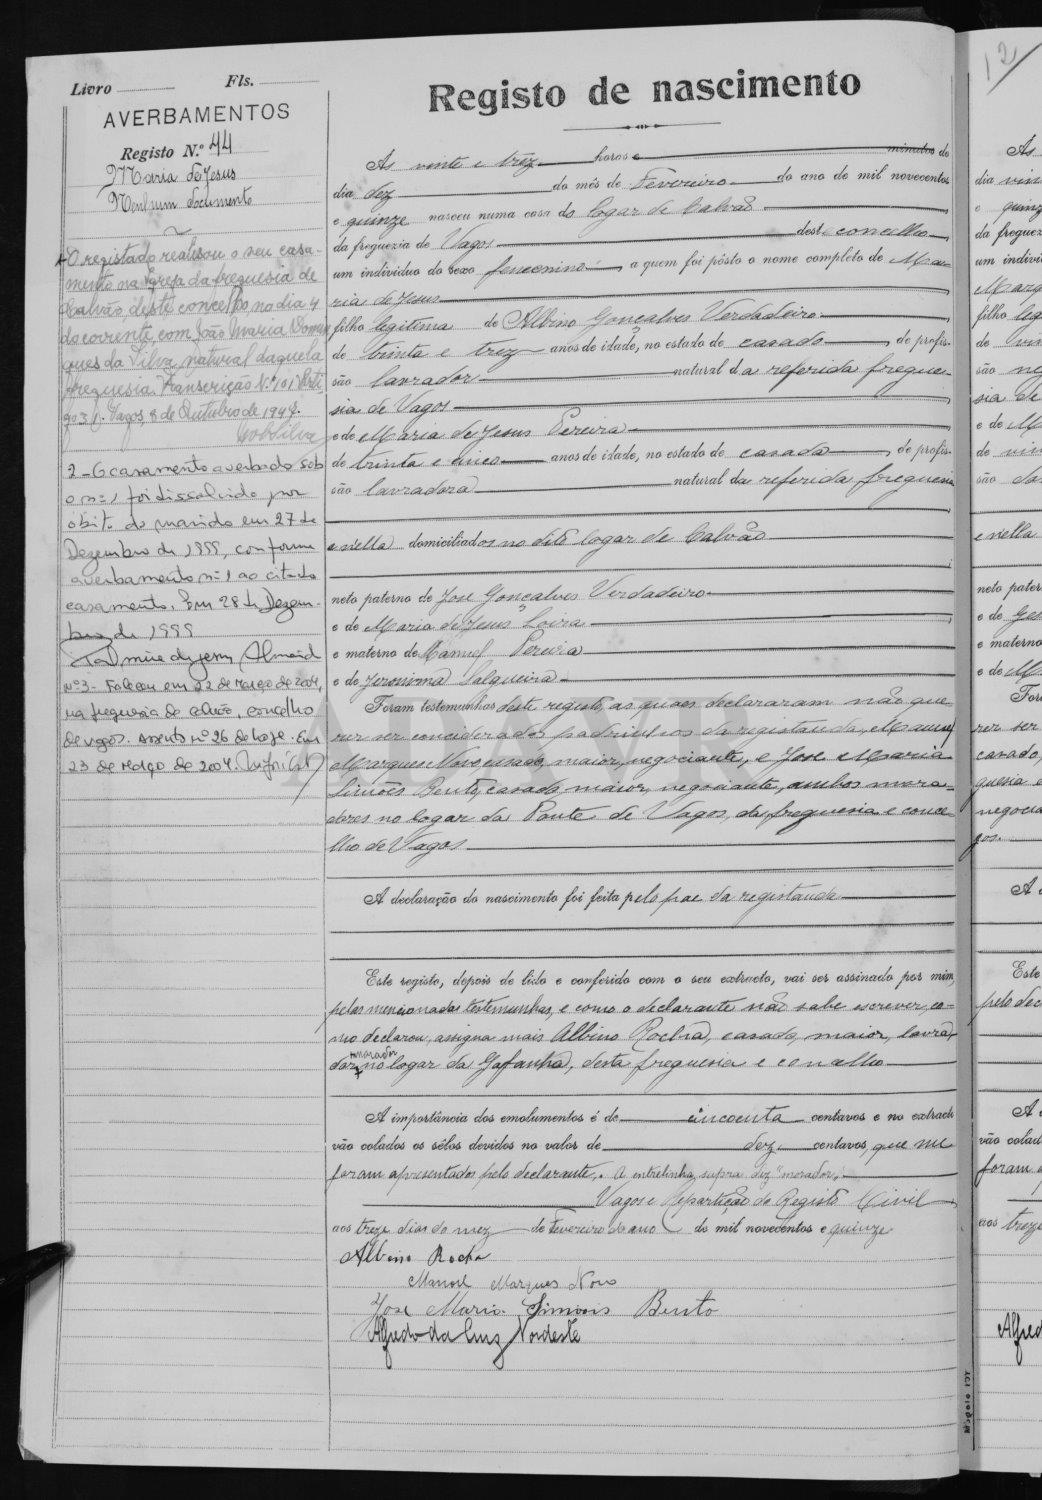 Livro Fls.
AVERBAMENTOS
Registo N.º 44
Maria de Jesus
Nenhum documento
O registado realisou o seu casa-
mento na Igreja da freguesia de
Calvão, deste concelho, no dia 4
do corrente, com João Maria Domin
gues da Silva, natural daquela
freguesia. Transcrição N.º 101. Arti
go 3(). Vagos, 8 de Outubro de 194
Silva
2 - O casamento averbado sob
o nº 1 foi dissolvido por
óbito do marido em 27 de
Dezembro de 1999, conforme
averbamento nº 1 ao citado
casamento. Em 28 de Dezem-
bro de 1999
Almeid
Nº 3 - Faleceu em 22 de Março de 2004,
na freguesia de Calvão, concelho
de Vagos. Assento nº 26 de hoje. Em
23 de Março de 2004.
Registo de nascimento
Às vinte e trêz horas e minutos do
dia dez do mês de Fevereiro do ano de mil novecentos
e quinze nasceu numa casa do logar de Calvão
da freguezia de Vagos deste concelho
um individuo do sexo femenino, a quem foi pôsto o nome completo de Ma-
ria de Jesus
filho legitima de Albino Gonçalves Verdadeiro
de trinta e trez anos de idade, no estado de casado, de profis-
são lavrador natural da referida fregue-
sia de Vagos
e de Maria de Jesus Pereira
de trinta e cinco anos de idade, no estado de casada, de profis-
são lavradora natural da referida freguesia
e nella domiciliados no dito logar de Calvão
neto paterno de José Gonçalves Verdadeiro
e de Maria de Jesus Loira
e materno de Manuel Pereira
e de Jeronima Salgueira
Foram testemunhas deste registo, as quaes declararam não que-
rer ser conciderados padrinhos da registanda, Manuel
Marques Novo, casado, maior, negociante, e José Maria
Simões Bento, casado, maior, negociante, ambos mora-
dores no logar da Ponte de Vagos, da freguesia e conce-
lho de Vagos
A declaração do nascimento foi feita pelo pae da registanda
Este registo, depois de lido e conferido com o seu extracto, vai ser assinado por mim,
pelas mencionadas testemunhas, e como o declarante não sabe escrever, co-
mo declarou, assigna mais Albino Rocha, casado, maior, lavra-
morador
dor, no logar da Gafanha, desta freguesia e concelho
A importância dos emolumentos é de cincoenta centavos e no extracto
vão colados os sêlos devidos no valor de dez centavos, que me
foram apresentados pelo declarante. A entrelinha supra diz "morador".
Vagos e Repartição do Registo Civil
aos treze dias do mez de Fevereiro do ano de mil novecentos e quinze
Albino Rocha
Manoel Marques Novo
José Maria Simões Bento
Alfredo da Cruz Nordeste
Modelo 157
12
As
dia vin
e quinz
da freguez
um indivi
Marq
filho leg
de vin
são neg
sia de
e de M
de vin
são do
e nella
neto pater
e de
e materno
e de M
For
rer ser
casado,
guesia e
negocia
gos.
A
Este
pelo dec
A
vão colad
foram a
aos treze
Alfred